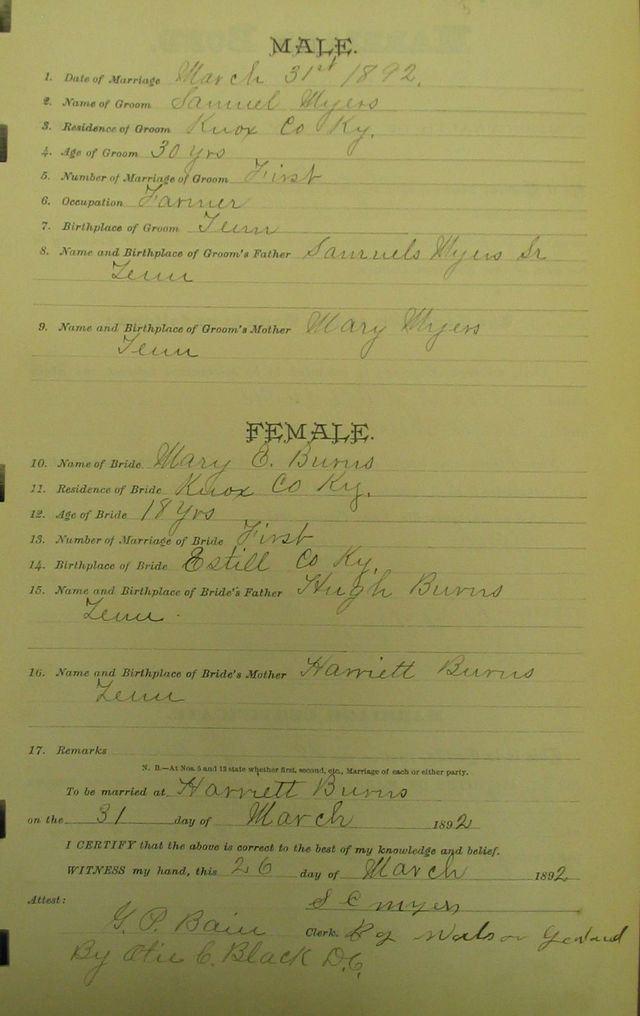 MALE.
1. Date of Marriage March 31st 1892.
2. Name of Groom Samuel Myers
3. Residence of Groom Knox Co Ky.
4. Age of Groom 30 yrs
5. Number of Marriage of Groom First
6. Occupation Farmer
7. Birthplace of Groom Tenn
8. Name and Birthplace of Groom's Father Samuels Myers Sr
Tenn
9. Name and Birthplace of Groom's Mother Mary Myers
Tenn
FEMALE.
10. Name of Bride Mary E. Burns
11. Residence of Bride Knox Co Ky.
12. Age of Bride 18 yrs
13. Number of Marriage of Bride First
14. Birthplace of Bride Estill Co Ky.
15. Name and Birthplace of Bride's Father Hugh Burns
Tenn
16. Name and Birthplace of Bride's Mother Harriett Burns
Tenn
17. Remarks
N. B.—At Nos. 5 and 13 state whether first, second, etc., Marriage of each or either party.
To be married at Harriett Burns
on the 31 day of March 1892
I CERTIFY that the above is correct to the best of my knowledge and belief.
WITNESS my hand, this 26 day of March 1892
Attest: S C myers
G. P. Bain Clerk.
By C. Black D.C.